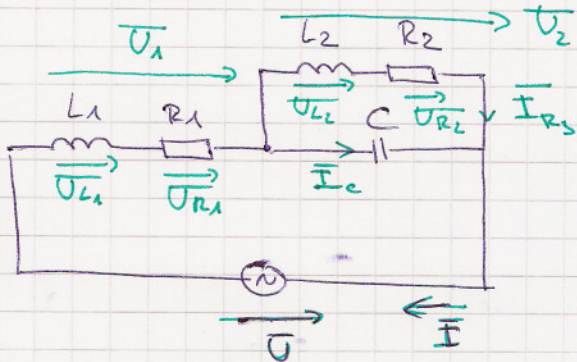 U̅₂
U̅₁
L₂ R₂
U̅L₂ U̅R₂ I̅R₃
L₁ R₁ C
U̅L₁ U̅R₁ I̅c
~
U̅ I̅